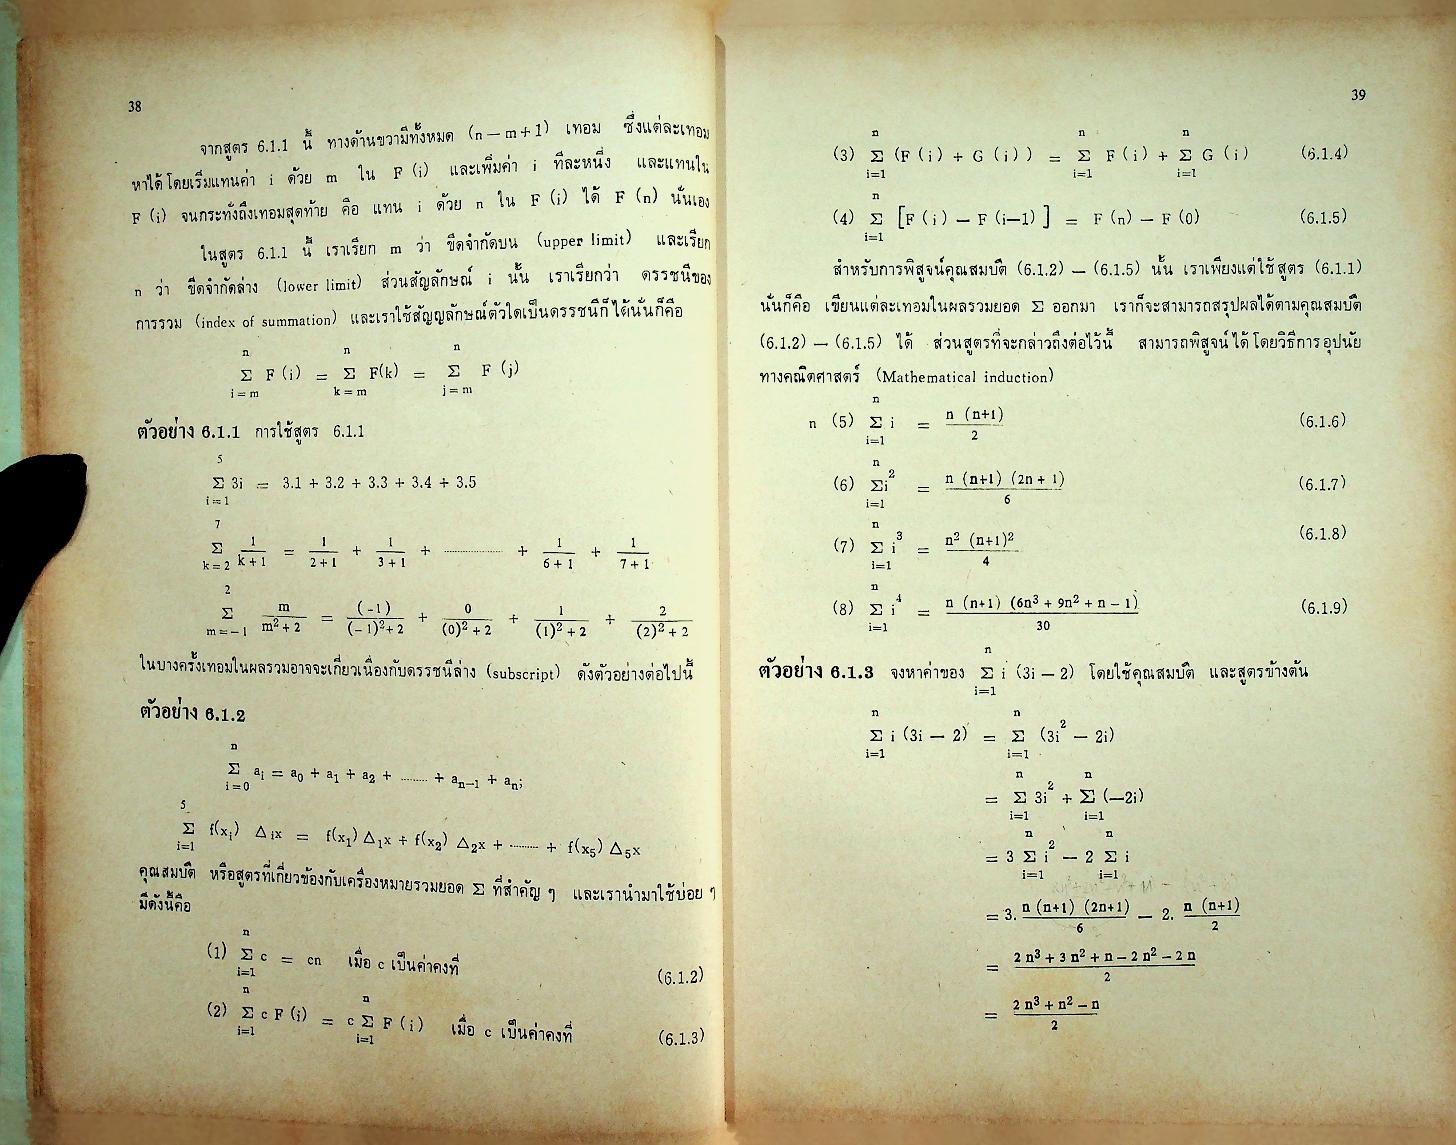 38
จากสูตร 6.1.1 นี้ ทางด้านขวามีทั้งหมด (n – m + 1) เทอม ซึ่งแต่ละเทอม
หาได้โดยเริ่มแทนค่า i ด้วย m ใน F (i) และเพิ่มค่า i ทีละหนึ่ง และแทนใน
F (i) จนกระทั่งถึงเทอมสุดท้าย คือ แทน i ด้วย n ใน F (i) ได้ F (n) นั่นเอง
ในสูตร 6.1.1 นี้ เราเรียก m ว่า ขีดจำกัดบน (upper limit) และเรียก
n ว่า ขีดจำกัดล่าง (lower limit) ส่วนสัญลักษณ์ i นั้น เราเรียกว่า ดรรชนีของ
การรวม (index of summation) และเราใช้สัญญลักษณ์ตัวใดเป็นดรรชนีก็ได้นั่นก็คือ
n n n
Σ F (i) = Σ F(k) = Σ F (j)
i = m k = m j = m
ตัวอย่าง 6.1.1 การใช้สูตร 6.1.1
5
Σ 3i = 3.1 + 3.2 + 3.3 + 3.4 + 3.5
i = 1
7
Σ 1/(k + 1) = 1/(2 + 1) + 1/(3 + 1) + ............... + 1/(6 + 1) + 1/(7 + 1)
k = 2
2
Σ m/(m² + 2) = (-1)/((-1)² + 2) + 0/((0)² + 2) + 1/((1)² + 2) + 2/((2)² + 2)
m = – 1
ในบางครั้งเทอมในผลรวมอาจจะเกี่ยวเนื่องกับดรรชนีล่าง (subscript) ดังตัวอย่างต่อไปนี้
ตัวอย่าง 6.1.2
n
Σ aᵢ = a₀ + a₁ + a₂ + ......... + aₙ₋₁ + aₙ;
i = 0
5
Σ f(xᵢ) Δᵢx = f(x₁) Δ₁x + f(x₂) Δ₂x + ......... + f(x₅) Δ₅x
i=1
คุณสมบัติ หรือสูตรที่เกี่ยวข้องกับเครื่องหมายรวมยอด Σ ที่สำคัญ ๆ และเรานำมาใช้บ่อย ๆ
มีดังนี้คือ
n
(1) Σ c = cn เมื่อ c เป็นค่าคงที่ (6.1.2)
i=1
n n
(2) Σ c F (i) = c Σ F (i) เมื่อ c เป็นค่าคงที่ (6.1.3)
i=1 i=1
39
n n n
(3) Σ (F (i) + G (i) ) = Σ F (i) + Σ G (i) (6.1.4)
i=1 i=1 i=1
n
(4) Σ [F (i) – F (i–1) ] = F (n) – F (0) (6.1.5)
i=1
สำหรับการพิสูจน์คุณสมบัติ (6.1.2) – (6.1.5) นั้น เราเพียงแต่ใช้สูตร (6.1.1)
นั่นก็คือ เขียนแต่ละเทอมในผลรวมยอด Σ ออกมา เราก็จะสามารถสรุปผลได้ตามคุณสมบัติ
(6.1.2) – (6.1.5) ได้ ส่วนสูตรที่จะกล่าวถึงต่อไว้นี้ สามารถพิสูจน์ได้โดยวิธีการอุปนัย
ทางคณิตศาสตร์ (Mathematical induction)
n
n (5) Σ i = n (n+1)/2 (6.1.6)
i=1
n
(6) Σi² = n (n+1) (2n + 1)/6 (6.1.7)
i=1
n
(7) Σ i³ = n² (n+1)²/4 (6.1.8)
i=1
n
(8) Σ i⁴ = n (n+1) (6n³ + 9n² + n – 1)/30 (6.1.9)
i=1
n
ตัวอย่าง 6.1.3 จงหาค่าของ Σ i (3i – 2) โดยใช้คุณสมบัติ และสูตรข้างต้น
i=1
n n
Σ i (3i – 2) = Σ (3i² – 2i)
i=1 i=1
n n
= Σ 3i² + Σ (–2i)
i=1 i=1
n n
= 3 Σ i² – 2 Σ i
i=1 i=1
= 3. n (n+1) (2n+1)/6 – 2. n (n+1)/2
= (2 n³ + 3 n² + n – 2 n² – 2 n)/2
= (2 n³ + n² – n)/2